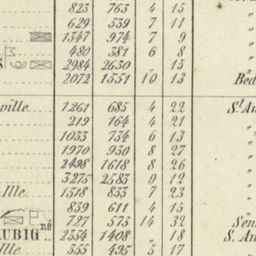 823 763 4 15 „
629 539 7 11 „
1347 974 7 9 „
480 381 6 8 „
2984 2630 „ 15 „
2072 1551 10 13 Bed
ville 1261 685 4 22 St Au
219 164 4 21 „
1033 734 6 13 „
1970 950 8 27 „
2498 1618 8 26 „
3275 2583 9 12 „
lle 1318 833 7 23 „
859 611 4 15 „
727 573 14 32 Sén
AUBIGné 2554 1408 „ 18 S. Au
lle 555 495 5 17 „